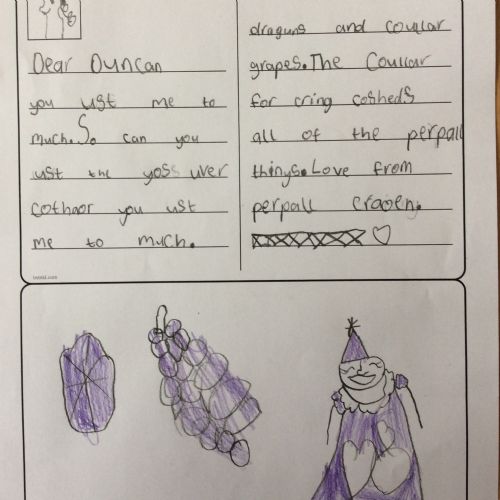 Dear Duncan
you ust me to
much. So can you
ust the yoss uver
cothaor you ust
me to much.
draguns and coullar
grapes. The Coullar
for cring cosheds
all of the perpall
things. Love from
perpall craoen.
twinkl.com